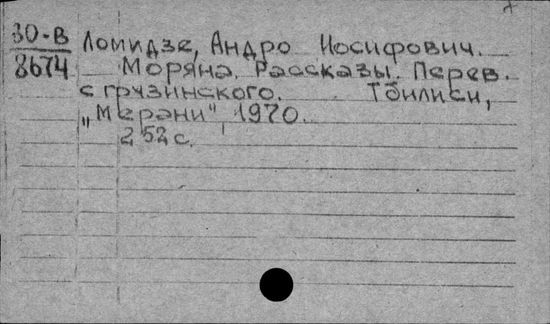 30-В Ломидзе, Андро Иосифович.
8674 Моряна. Рассказы. Перев.
с грузинского. Тбилиси,
„Мерани", 1970.
252 с.